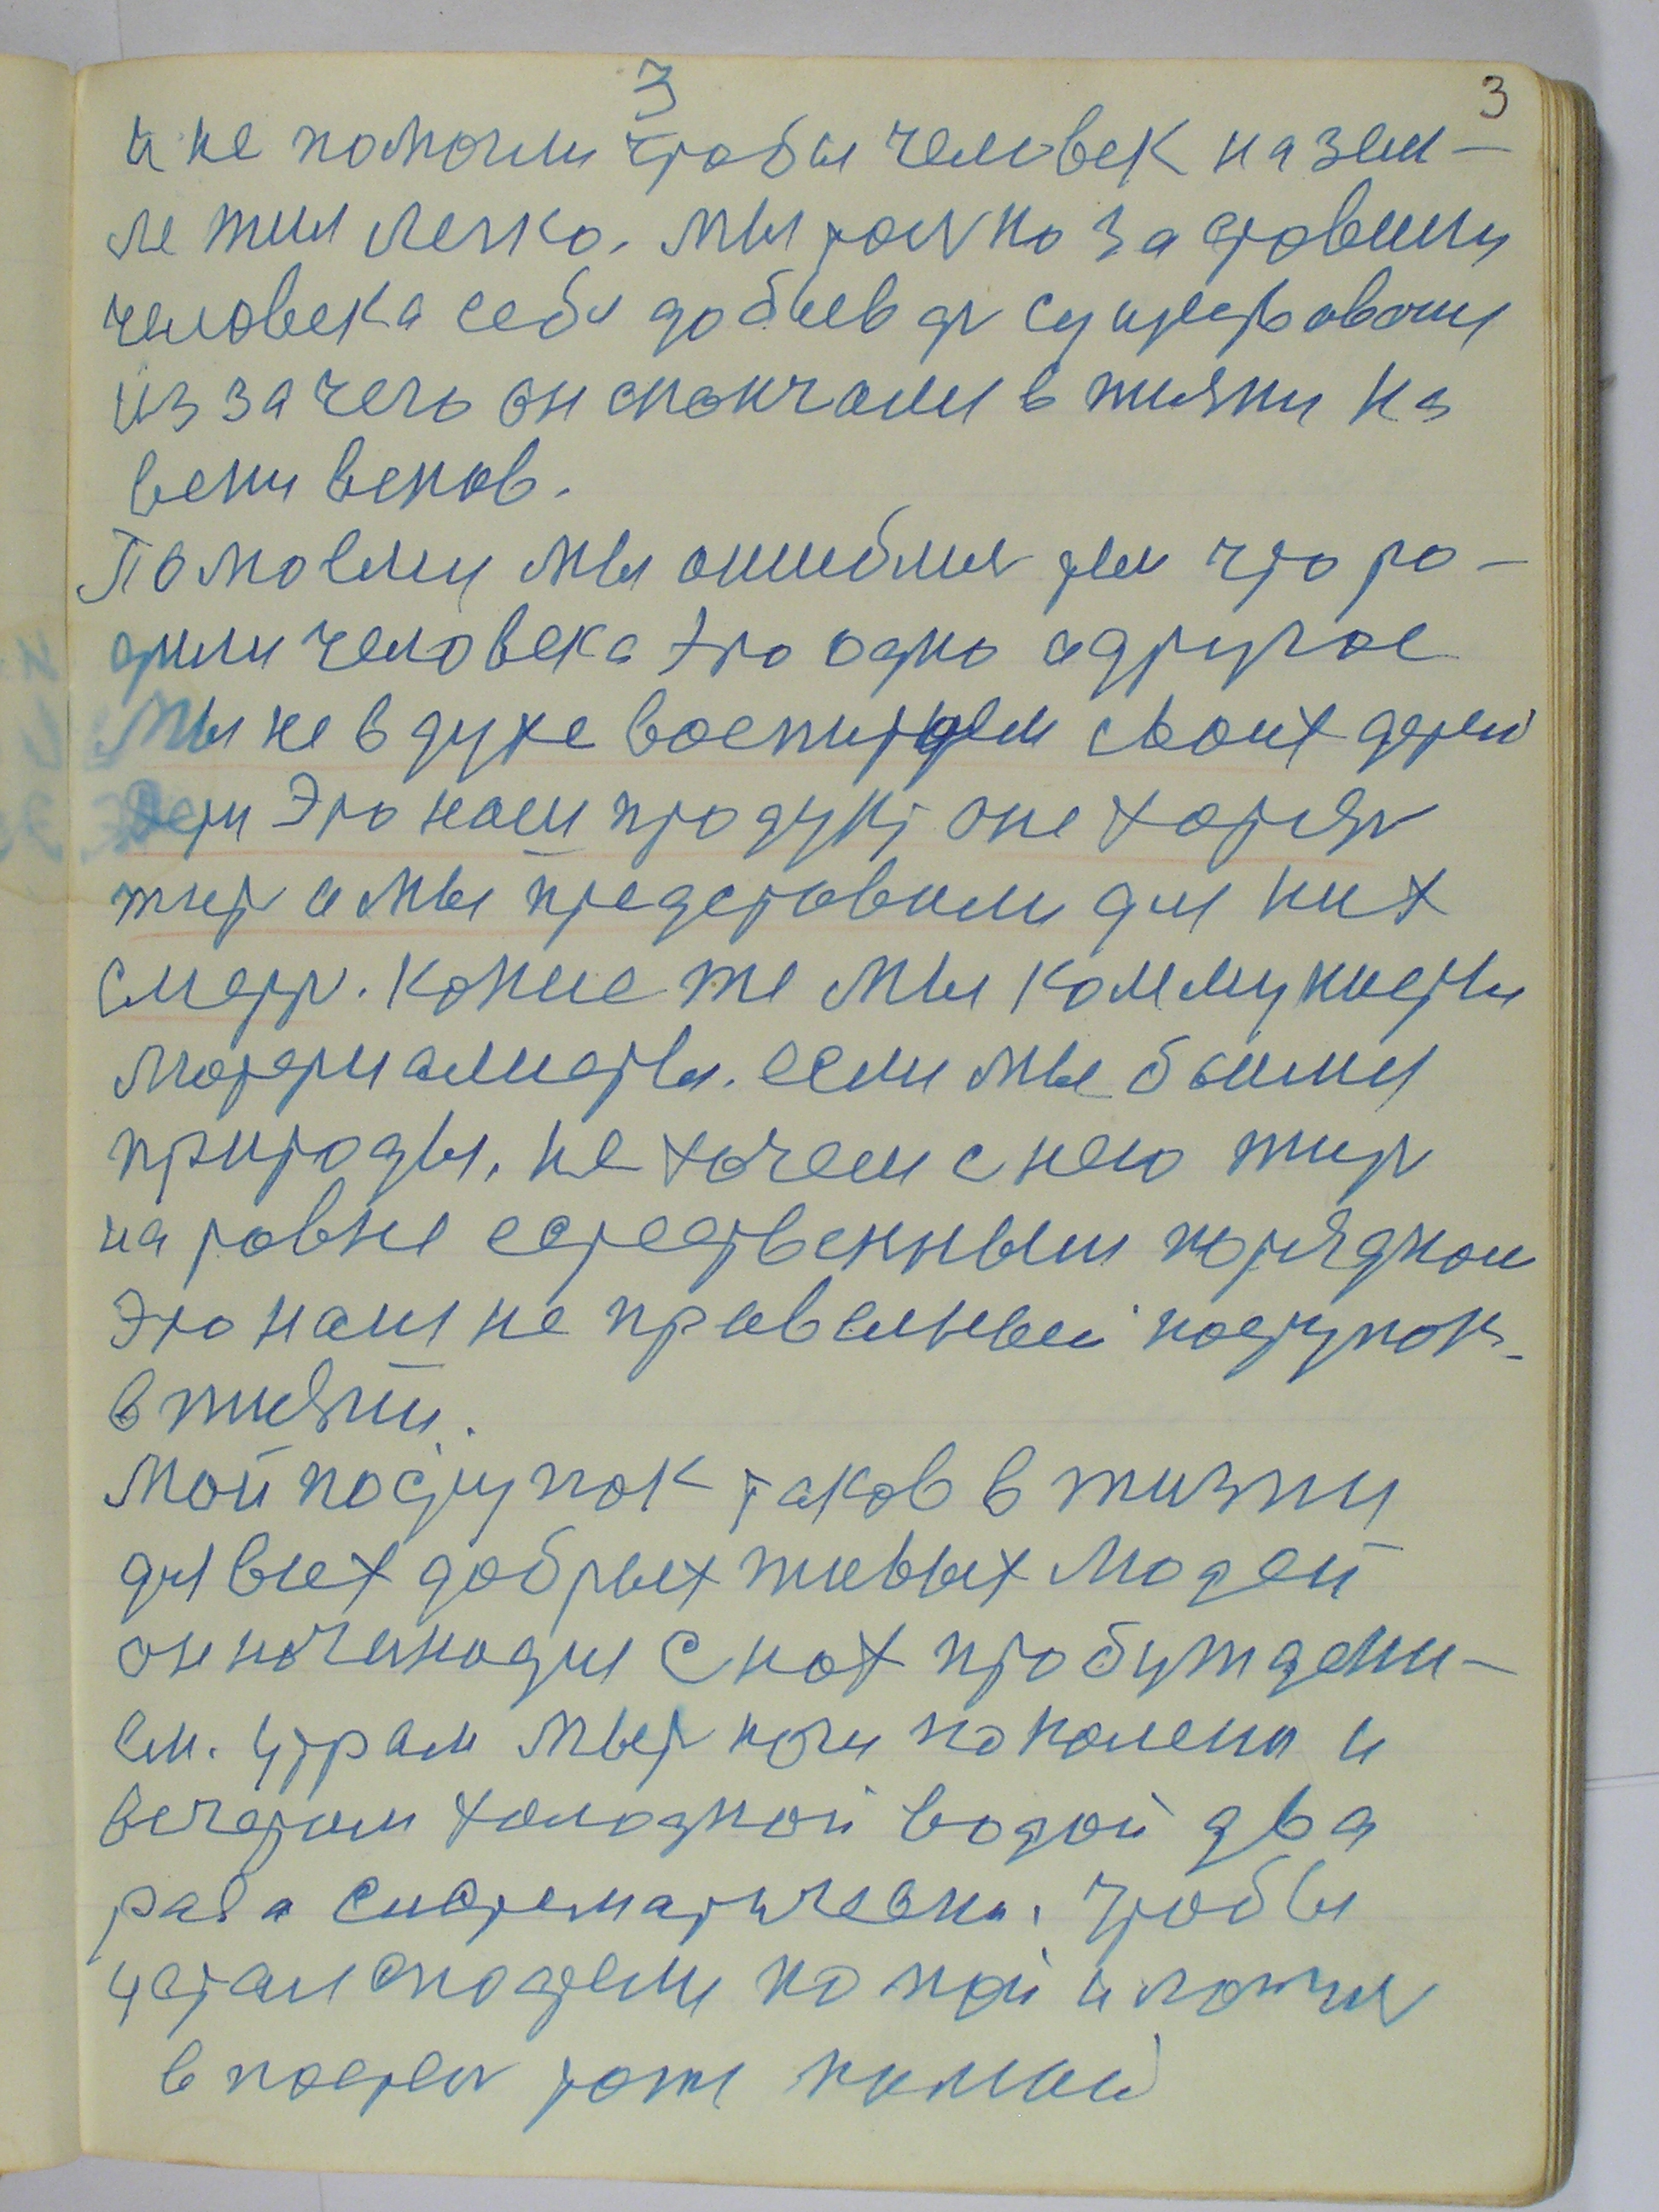 3
3
и не помогли чтобы человек на зем-
ле жил легко. мы только заставили
человека себя добиваться существования
из за чего он скончался в жизни на
веки веков.
По моему мы ошиблись тем что ро-
дили человека это одно а другое
мы не в духе воспитуем своих детей
Дети Это наш продукт они хотят
жить а мы представили для них
смерть. Какие же мы коммунисты
материалисты. если мы боимся
природы, не хочем с нею жить
на равне естественным порядком
Это наш не правельный поступок
в жизни.
Мой поступок таков в жизни
для всех добрых живых людей
он начинается с ног пробуждени-
ем. Утрам мыть ноги по колена и
вечером холодной водой два
раза систематически. Чтобы
устал
в постель тоже